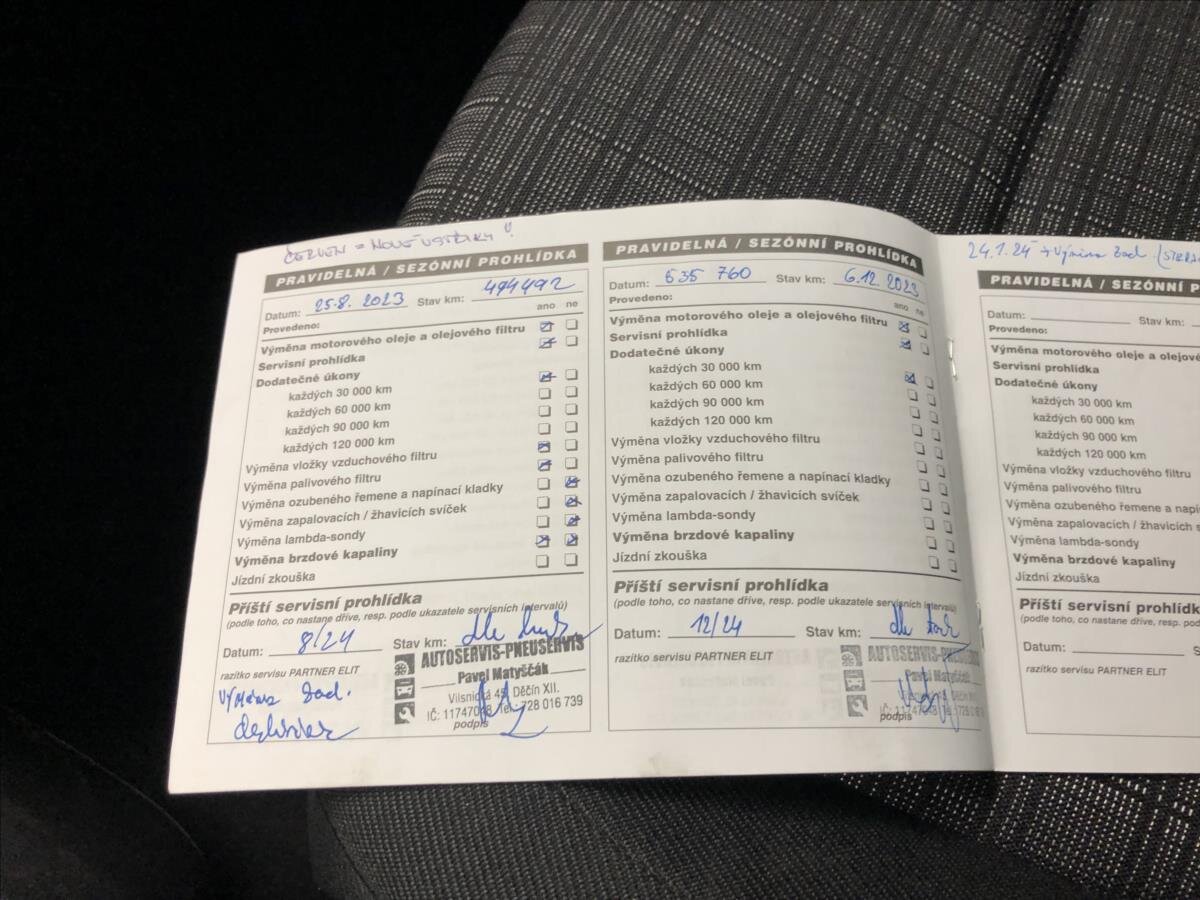 ČERVEN = NOVÉ VSTŘIKY
PRAVIDELNÁ / SEZÓNNÍ PROHLÍDKA
Datum: 25.8. 2023 Stav km: 494492
Provedeno: ano ne
Výměna motorového oleje a olejového filtru
Servisní prohlídka
Dodatečné úkony
každých 30 000 km
každých 60 000 km
každých 90 000 km
každých 120 000 km
Výměna vložky vzduchového filtru
Výměna palivového filtru
Výměna ozubeného řemene a napínací kladky
Výměna zapalovacích / žhavicích svíček
Výměna lambda-sondy
Výměna brzdové kapaliny
Jízdní zkouška
Příští servisní prohlídka
(podle toho, co nastane dříve, resp. podle ukazatele servisních intervalů)
Datum: 8/24 Stav km: dle
razítko servisu PARTNER ELIT
AUTOSERVIS-PNEUSERVIS
Pavel Matyščák
Vilsnická 45, Děčín XII.
IČ: 11747048 Tel. 728 016 739
podpis
výměna zad.
PRAVIDELNÁ / SEZÓNNÍ PROHLÍDKA
Datum: 635 760 Stav km: 6.12. 2023
Provedeno: ano ne
Výměna motorového oleje a olejového filtru
Servisní prohlídka
Dodatečné úkony
každých 30 000 km
každých 60 000 km
každých 90 000 km
každých 120 000 km
Výměna vložky vzduchového filtru
Výměna palivového filtru
Výměna ozubeného řemene a napínací kladky
Výměna zapalovacích / žhavicích svíček
Výměna lambda-sondy
Výměna brzdové kapaliny
Jízdní zkouška
Příští servisní prohlídka
(podle toho, co nastane dříve, resp. podle ukazatele servisních intervalů)
Datum: 12/24 Stav km: dle
razítko servisu PARTNER ELIT
AUTOSERVIS-PNEUSERVIS
Pavel Matyščák
podpis
24.1.24 + Výměna zad.
PRAVIDELNÁ / SEZÓNNÍ P
Datum: Stav km:
Provedeno:
Výměna motorového oleje a olejové
Servisní prohlídka
Dodatečné úkony
každých 30 000 km
každých 60 000 km
každých 90 000 km
každých 120 000 km
Výměna vložky vzduchového filtru
Výměna palivového filtru
Výměna ozubeného řemene a napí
Výměna zapalovacích / žhavicích s
Výměna lambda-sondy
Výměna brzdové kapaliny
Jízdní zkouška
Příští servisní prohlídk
(podle toho, co nastane dříve, resp. pod
Datum: S
razítko servisu PARTNER ELIT